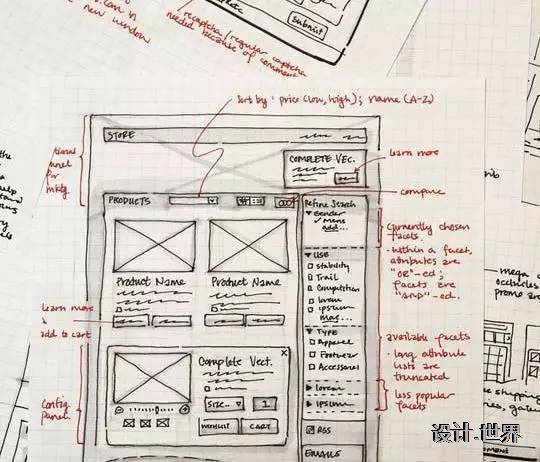 can in
new window
recaptcha/regular captcha
needed because of comment
submit
sort by: price (low, high); name (A-Z)
STORE
COMPLETE VEC.
learn more
compare
PRODUCTS
Refine Search
Gender
Mens
add...
currently chosen
facets.
· within a facet,
attributes are
"or"-ed;
facets are
"and"-ed.
USE
Stability
Trail
Competition
lorem
ipsum
more...
Product Name
Product Name
learn more
add to cart
TYPE
Apparel
Footwear
Accessories
available facets
· long attribute
lists are
truncated
Complete Vect.
X
Size..
1
WISHLIST
CART
config
panel
lorem
ipsum
less popular
facets
RSS
EMAILS
mega
shipping
设计·世界